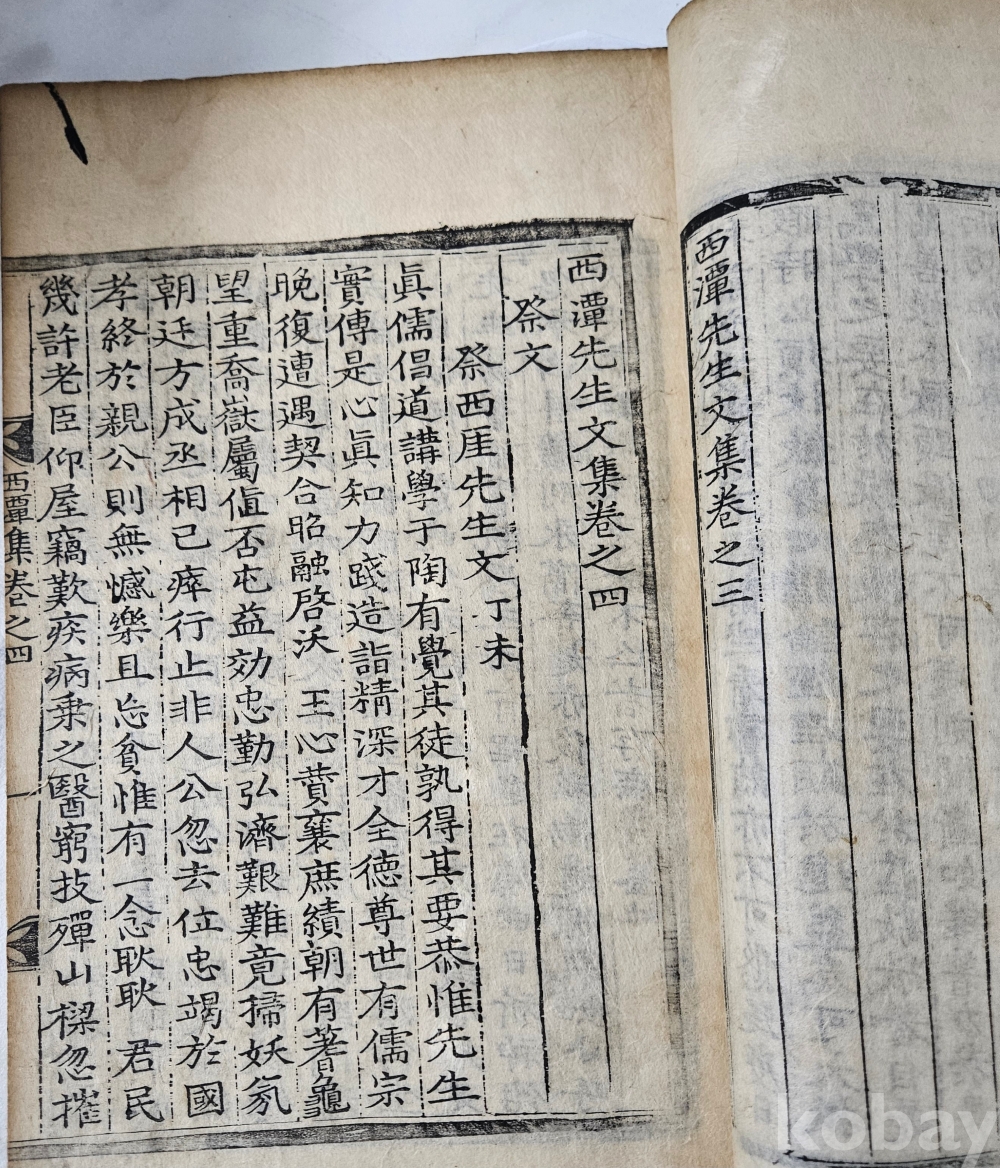 西潭先生文集卷之三
西潭先生文集卷之四
祭文
祭西厓先生文 丁未
眞儒倡道講學于陶有覺其徒孰得其要恭惟先生
實傳是心眞知力踐造詣精深才全德尊世有儒宗
晩復遭遇契合昭融啓沃 王心贊襄庶績朝有蓍龜
望重喬嶽屬値否屯益効忠勤弘濟艱難竟掃妖氛
朝廷方成丞相已瘁行止非人公忽去位忠竭於國
孝終於親公則無憾樂且忘貧惟有一念耿耿 君民
幾許老臣仰屋竊歎疾病乘之醫窮技殫山樑忽摧
西潭集卷之四
kobay